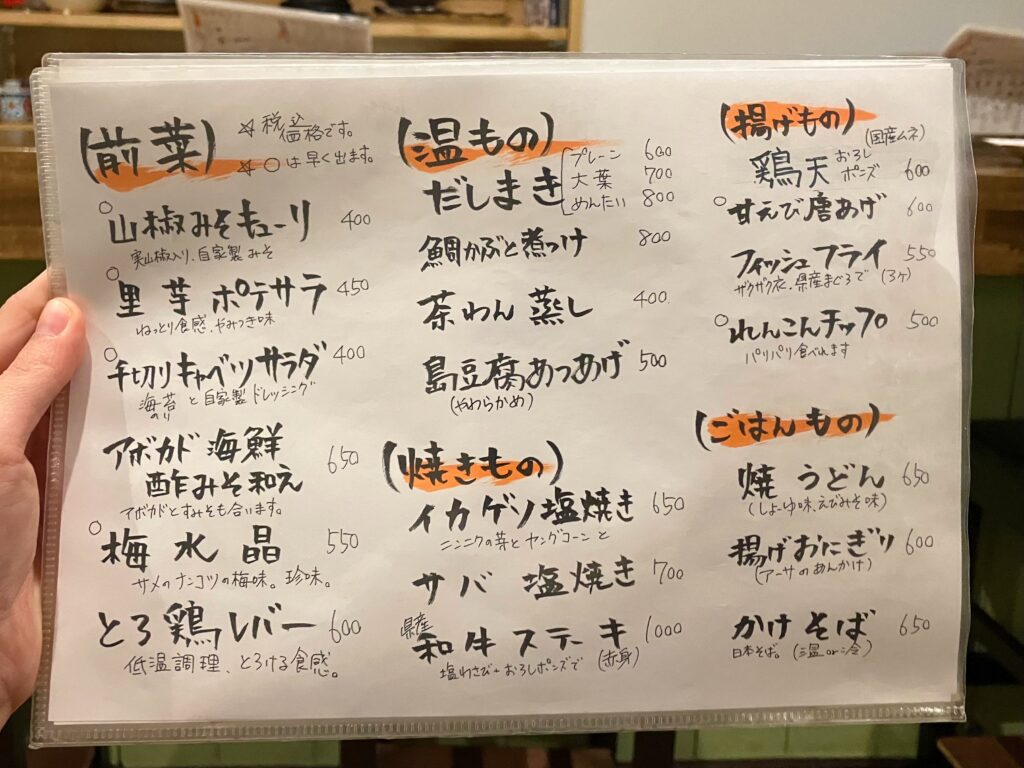 (前葉)
☆税込価格です。
☆○は早く出ます。
○山椒みそキューリ 400
実山椒入り、自家製みそ
○里芋ポテサラ 450
ねっとり食感、やみつき味
○手切りキャベツサラダ 400
海苔と自家製ドレッシング
のり
アボカド海鮮
酢みそ和え 650
アボカドとすみそも合います。
○梅水晶 550
サメのナンコツの梅味。珍味。
とろ鶏レバー 600
低温調理、とろける食感。
(温もの)
だしまき
プレーン 600
大葉 700
めんたい 800
鯛かぶと煮つけ 800
茶わん蒸し 400
島豆腐あつあげ 500
(やわらかめ)
(焼きもの)
イカゲソ塩焼き 650
ニンニクの芽とヤングコーンと
サバ塩焼き 700
県産和牛ステーキ 1000
塩わさび+おろしポンズで (赤身)
(揚げもの)
(国産ムネ)
鶏天 おろしポンズ 600
○甘えび唐あげ 600
フィッシュフライ 550
ザクザク衣、県産まぐろで (3ヶ)
○れんこんチップ 500
パリパリ食べれます
(ごはんもの)
焼うどん 650
(しょーゆ味、えびみそ味)
揚げおにぎり 600
(アーサのあんかけ)
かけそば 650
日本そば。(温or冷)